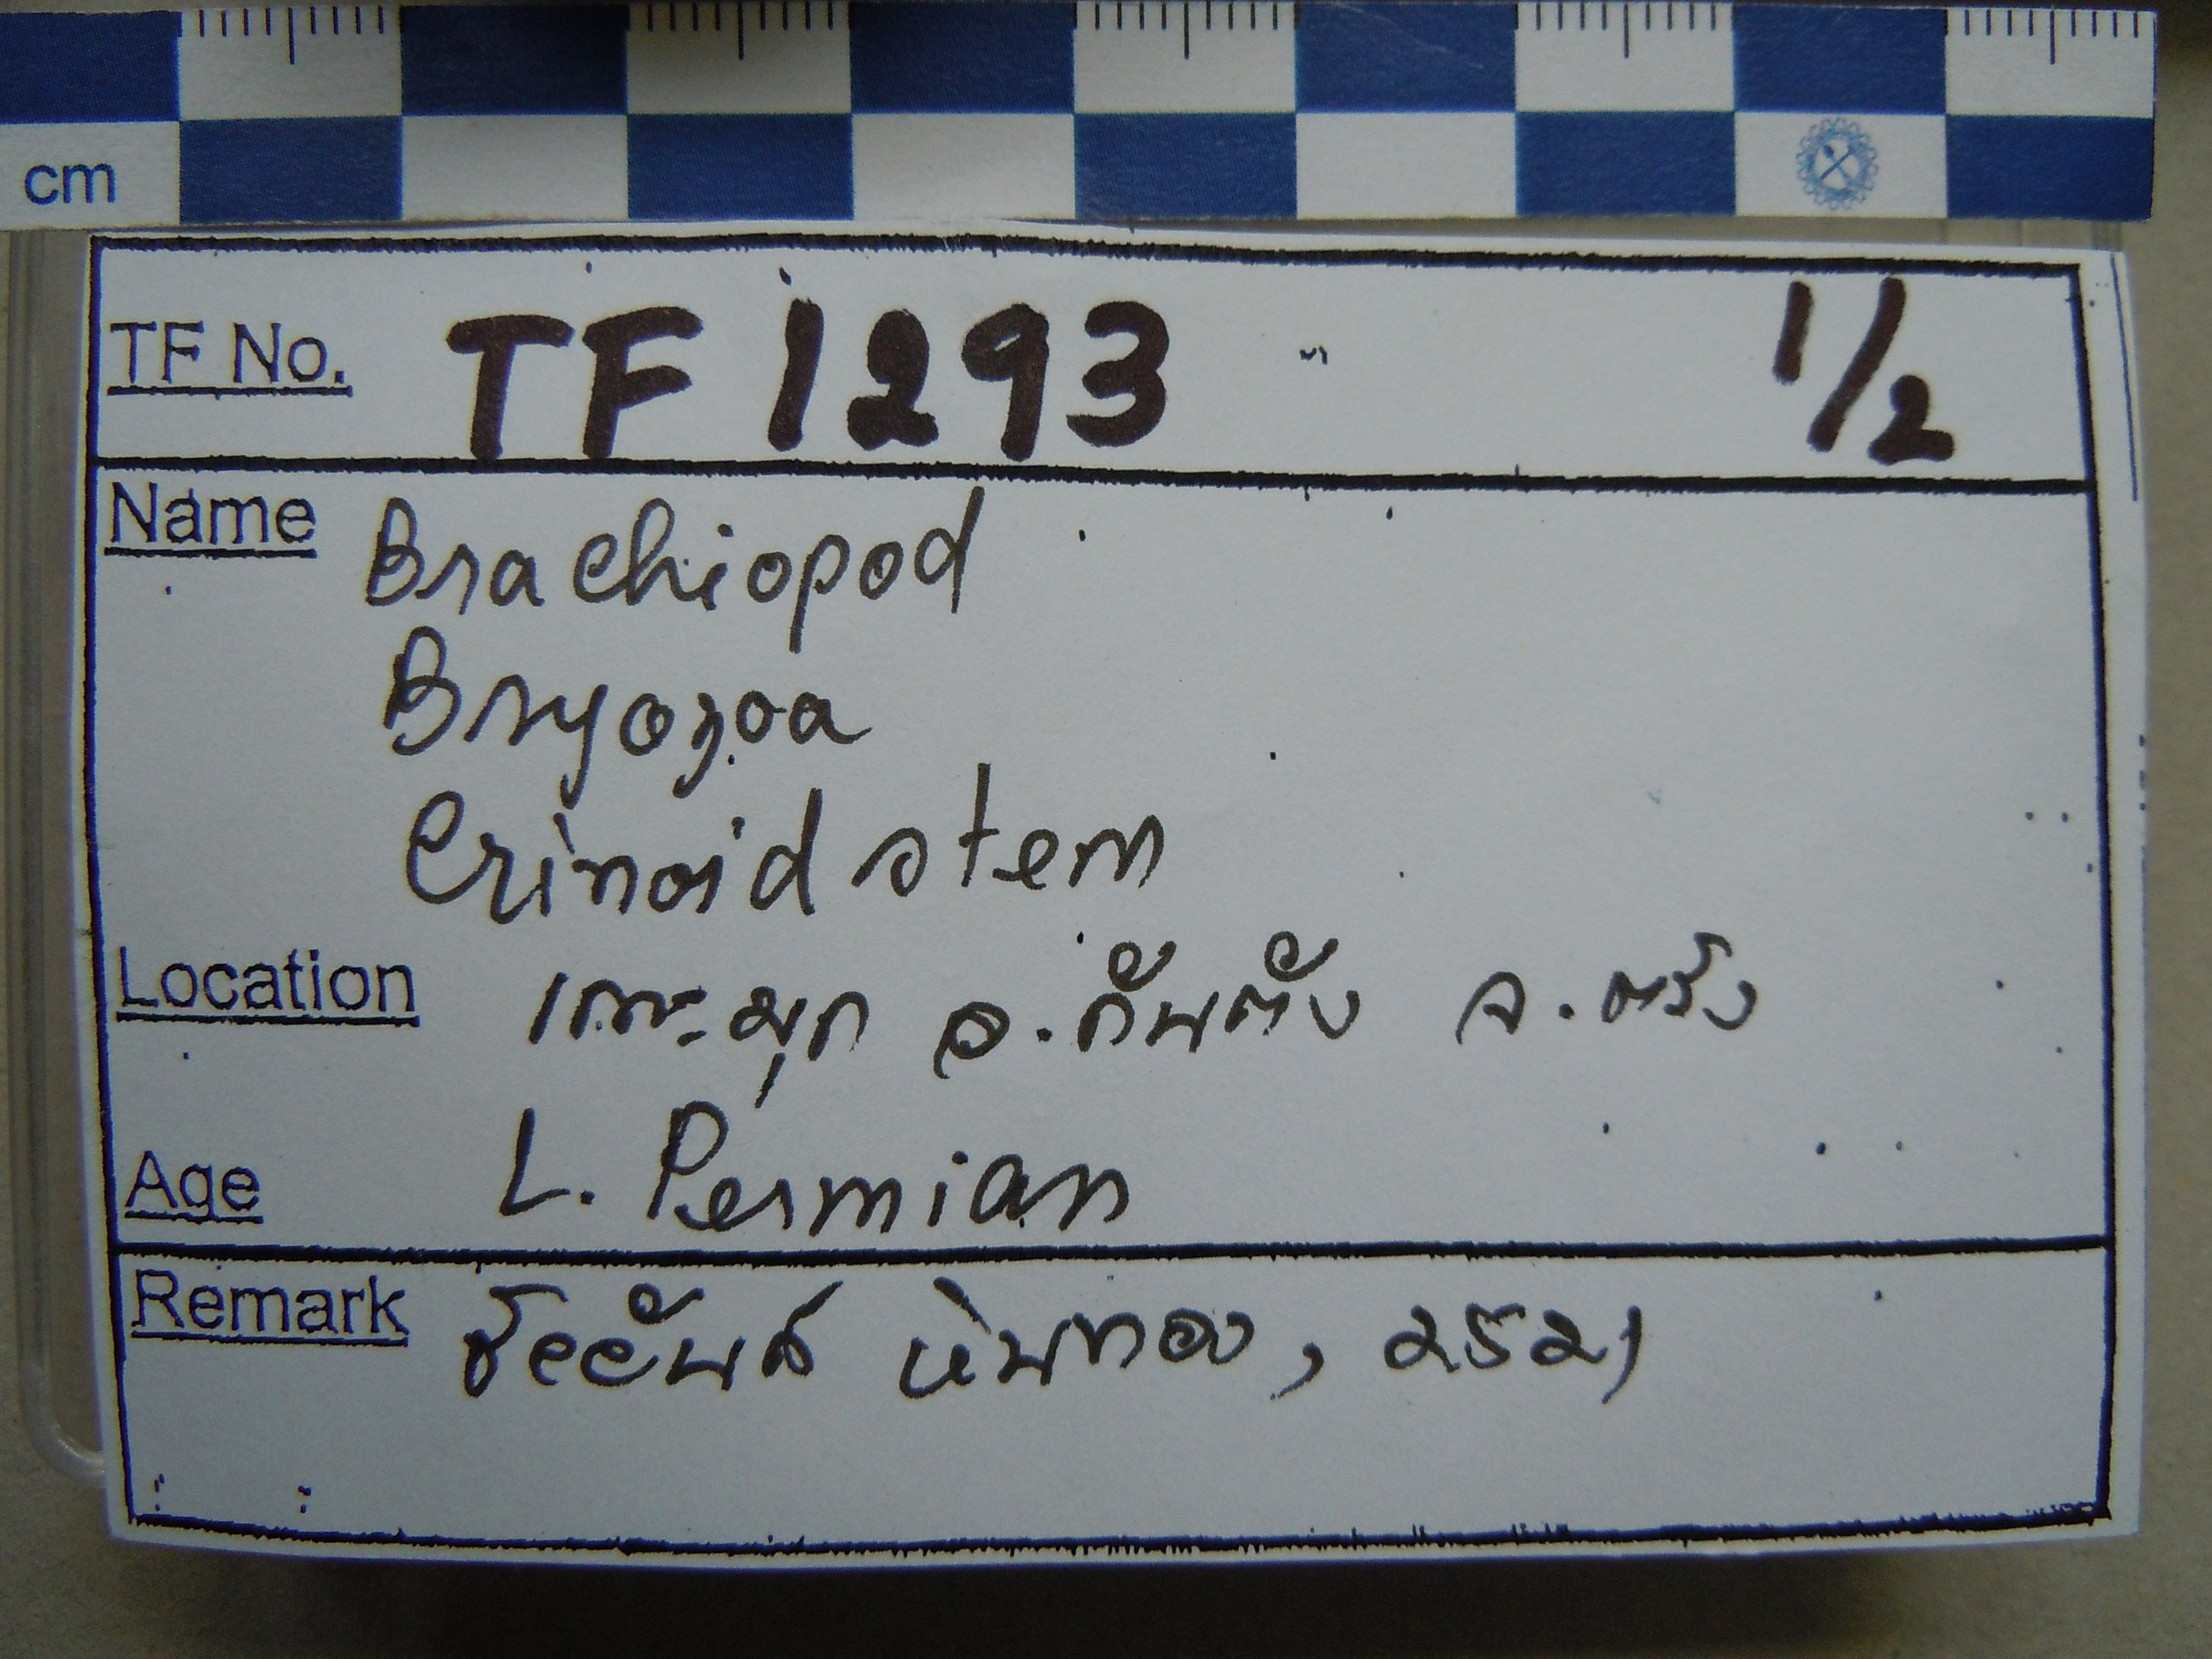 cm
TF No. TF 1293 1/2
Name Brachiopod
Bryozoa
Crinoid stem
Location เกาะมุก อ.กันตัง จ.ตรัง
Age L. Permian
Remark หินทอง, 2521